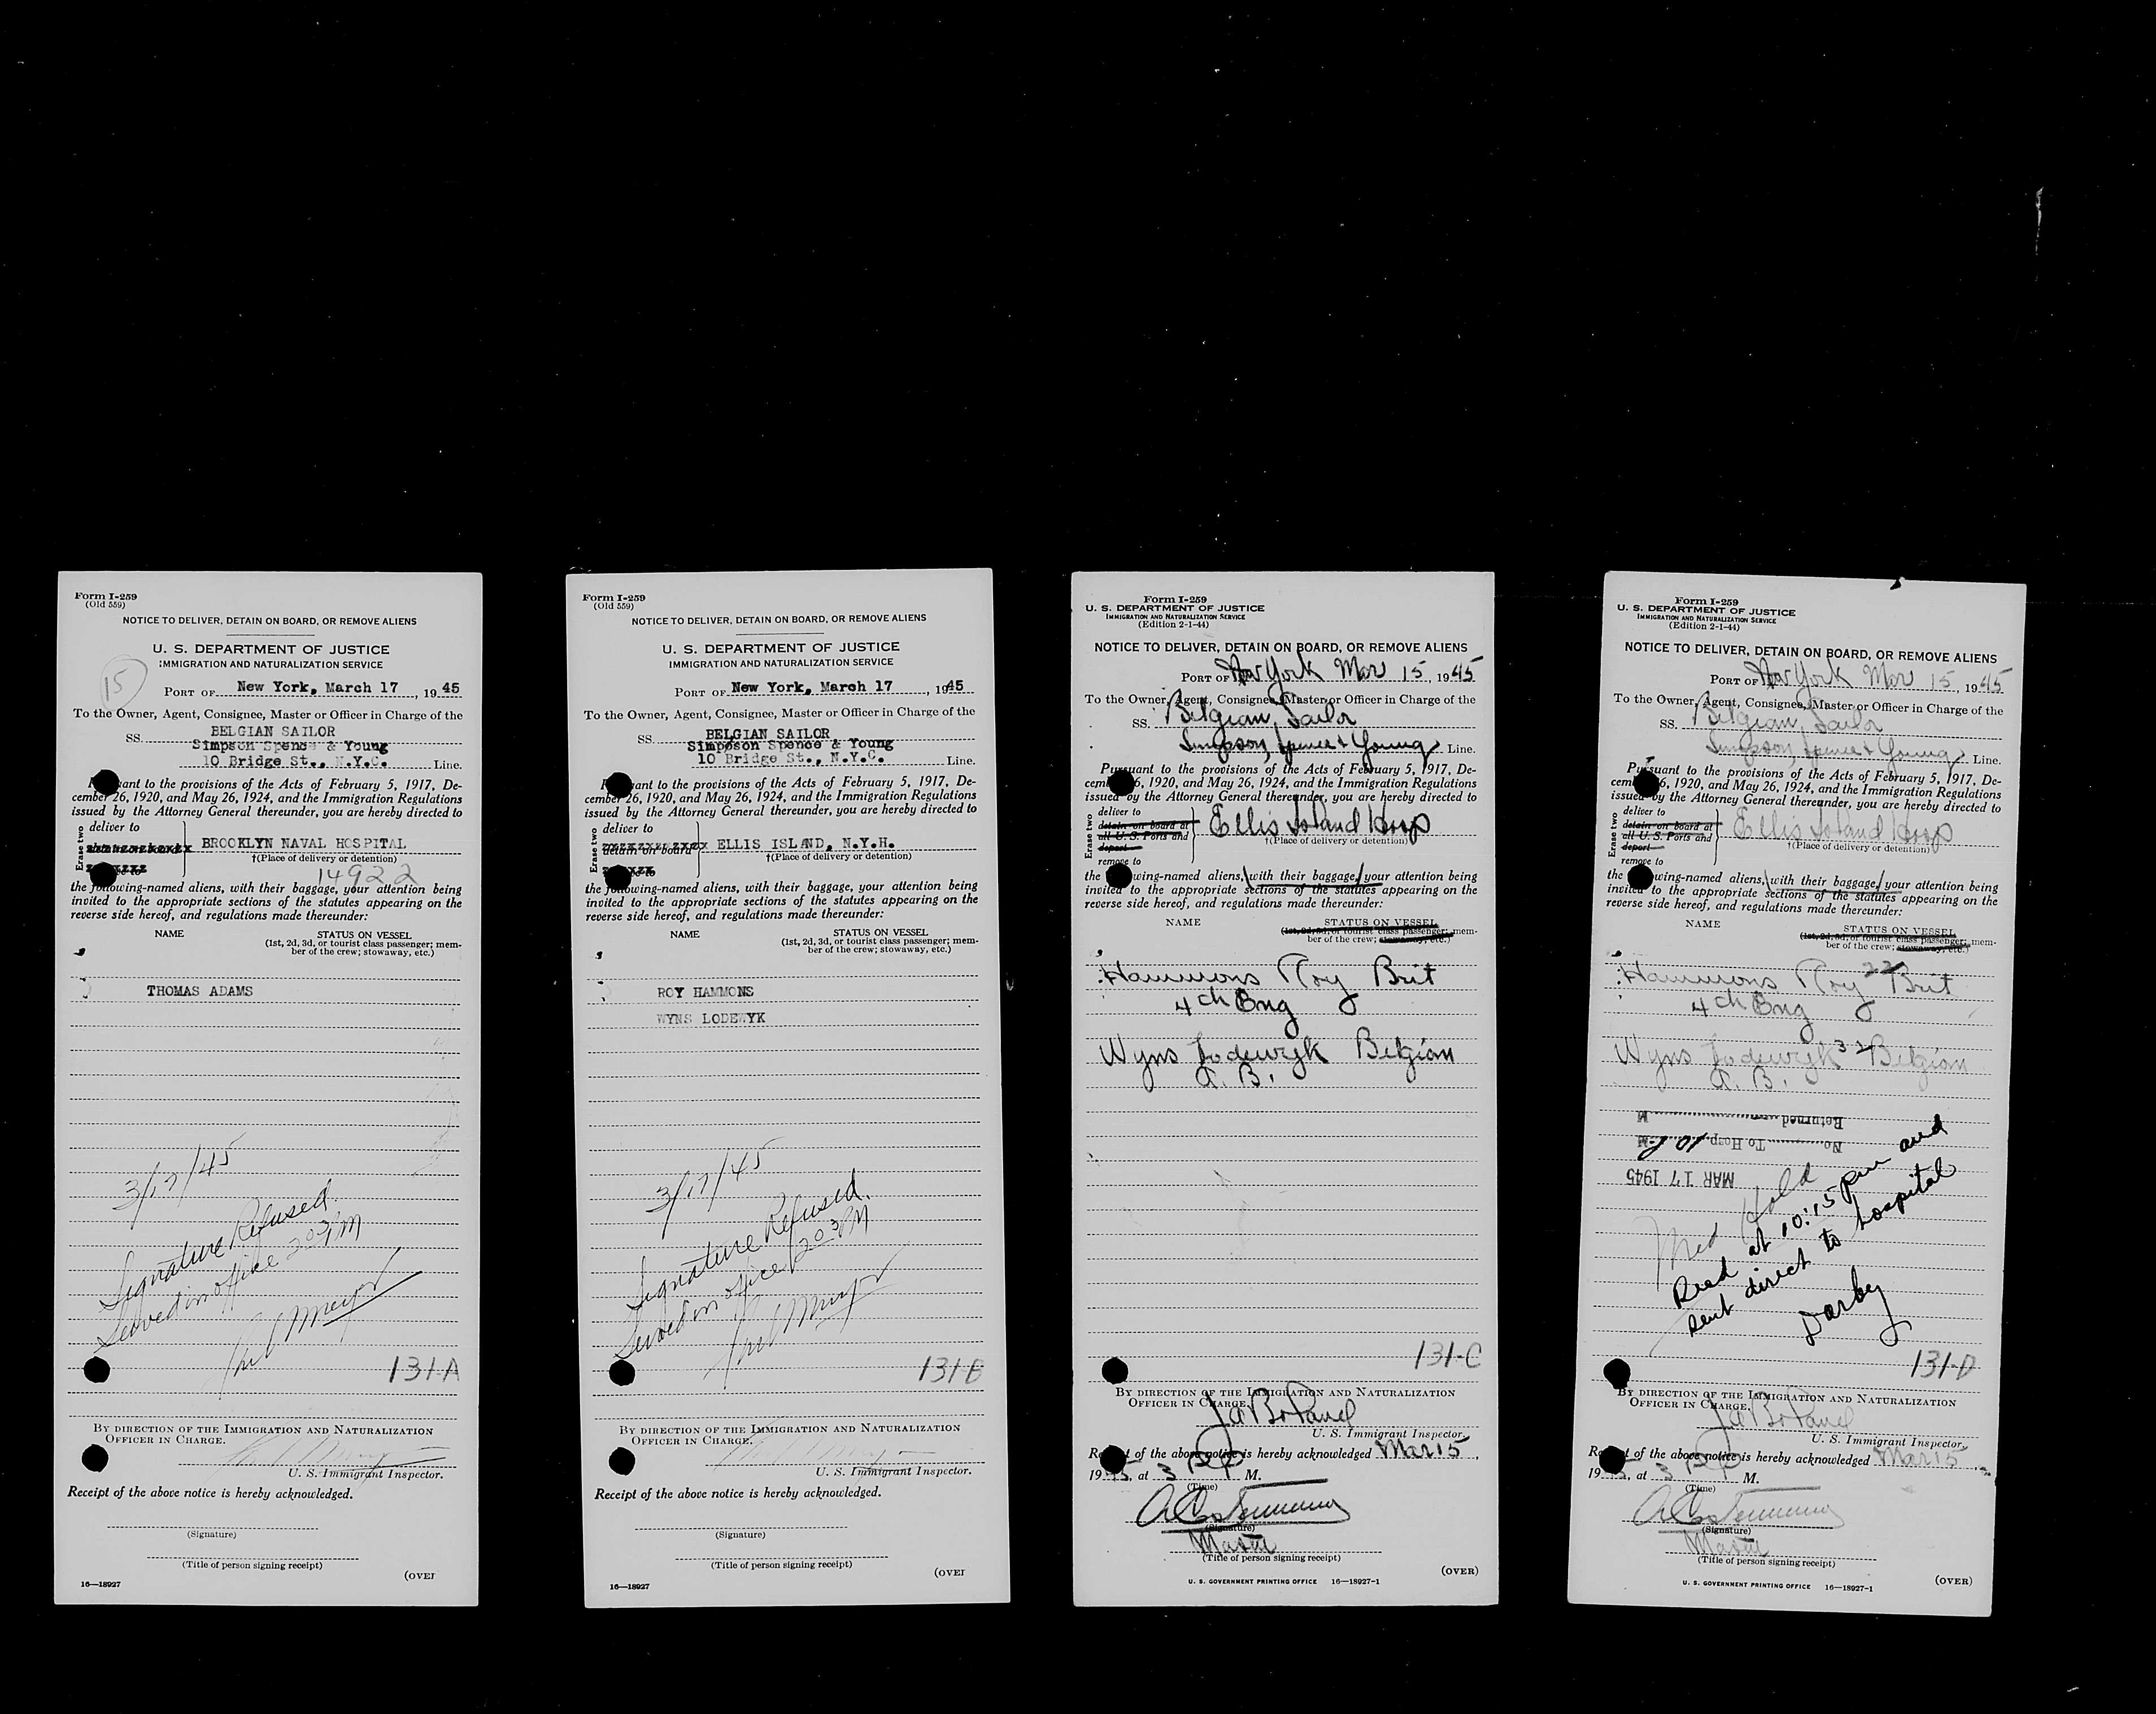 Form I-259
(Old 559)
NOTICE TO DELIVER, DETAIN ON BOARD, OR REMOVE ALIENS
U. S. DEPARTMENT OF JUSTICE
IMMIGRATION AND NATURALIZATION SERVICE
15
PORT OF New York, March 17, 1945
To the Owner, Agent, Consignee, Master or Officer in Charge of the
SS. BELGIAN SAILOR
Simpson Spence & Young
10 Bridge St., N.Y.C. Line.
ant to the provisions of the Acts of February 5, 1917, De-
cember 26, 1920, and May 26, 1924, and the Immigration Regulations
issued by the Attorney General thereunder, you are hereby directed to
Erase two
deliver to
BROOKLYN NAVAL HOSPITAL
†(Place of delivery or detention)
14922
the following-named aliens, with their baggage, your attention being
invited to the appropriate sections of the statutes appearing on the
reverse side hereof, and regulations made thereunder:
NAME STATUS ON VESSEL
(1st, 2d, 3d, or tourist class passenger; mem-
ber of the crew; stowaway, etc.)
THOMAS ADAMS
3/17/45
Signature Refused.
Served in office 203PM
131-A
BY DIRECTION OF THE IMMIGRATION AND NATURALIZATION
OFFICER IN CHARGE.
U. S. Immigrant Inspector.
Receipt of the above notice is hereby acknowledged.
(Signature)
(Title of person signing receipt)
(OVER
16—18927
Form I-259
(Old 559)
NOTICE TO DELIVER, DETAIN ON BOARD, OR REMOVE ALIENS
U. S. DEPARTMENT OF JUSTICE
IMMIGRATION AND NATURALIZATION SERVICE
PORT OF New York, March 17, 1945
To the Owner, Agent, Consignee, Master or Officer in Charge of the
SS. BELGIAN SAILOR
Simpson Spence & Young
10 Bridge St., N.Y.C. Line.
ant to the provisions of the Acts of February 5, 1917, De-
cember 26, 1920, and May 26, 1924, and the Immigration Regulations
issued by the Attorney General thereunder, you are hereby directed to
Erase two
deliver to
detain on board
ELLIS ISLAND, N.Y.H.
†(Place of delivery or detention)
the following-named aliens, with their baggage, your attention being
invited to the appropriate sections of the statutes appearing on the
reverse side hereof, and regulations made thereunder:
NAME STATUS ON VESSEL
(1st, 2d, 3d, or tourist class passenger; mem-
ber of the crew; stowaway, etc.)
ROY HAMMONS
WYNS LODEWYK
3/17/45
Signature Refused.
Served in office 203PM
131-B
BY DIRECTION OF THE IMMIGRATION AND NATURALIZATION
OFFICER IN CHARGE.
U. S. Immigrant Inspector.
Receipt of the above notice is hereby acknowledged.
(Signature)
(Title of person signing receipt)
(OVER
16—18927
Form I-259
U. S. DEPARTMENT OF JUSTICE
IMMIGRATION AND NATURALIZATION SERVICE
(Edition 2-1-44)
NOTICE TO DELIVER, DETAIN ON BOARD, OR REMOVE ALIENS
PORT OF New York Mar 15, 1945
To the Owner, Agent, Consignee, Master or Officer in Charge of the
SS. Belgian Sailor
Simpson, Spence & Young Line.
Pursuant to the provisions of the Acts of February 5, 1917, De-
cember 26, 1920, and May 26, 1924, and the Immigration Regulations
issued by the Attorney General thereunder, you are hereby directed to
Erase two
deliver to
detain on board at
all U. S. Ports and
deport
remove to
Ellis Island Hosp
†(Place of delivery or detention)
the following-named aliens, with their baggage, your attention being
invited to the appropriate sections of the statutes appearing on the
reverse side hereof, and regulations made thereunder:
NAME STATUS ON VESSEL
(1st, 2d, 3d, or tourist class passenger; mem-
ber of the crew; stowaway, etc.)
Hammons Roy Brit
4th Eng
Wyns Lodewyk Belgian
A. B.
131-C
BY DIRECTION OF THE IMMIGRATION AND NATURALIZATION
OFFICER IN CHARGE.
U. S. Immigrant Inspector.
Receipt of the above notice is hereby acknowledged Mar 15,
1945, at 3 P M.
(Time)
(Signature)
Master
(Title of person signing receipt)
(OVER)
U. S. GOVERNMENT PRINTING OFFICE 16—18927-1
Form I-259
U. S. DEPARTMENT OF JUSTICE
IMMIGRATION AND NATURALIZATION SERVICE
(Edition 2-1-44)
NOTICE TO DELIVER, DETAIN ON BOARD, OR REMOVE ALIENS
PORT OF New York Mar 15, 1945
To the Owner, Agent, Consignee, Master or Officer in Charge of the
SS. Belgian Sailor
Simpson, Spence & Young Line.
Pursuant to the provisions of the Acts of February 5, 1917, De-
cember 26, 1920, and May 26, 1924, and the Immigration Regulations
issued by the Attorney General thereunder, you are hereby directed to
Erase two
deliver to
detain on board at
all U. S. Ports and
deport
remove to
Ellis Island Hosp
†(Place of delivery or detention)
the following-named aliens, with their baggage, your attention being
invited to the appropriate sections of the statutes appearing on the
reverse side hereof, and regulations made thereunder:
NAME STATUS ON VESSEL
(1st, 2d, 3d, or tourist class passenger; mem-
ber of the crew; stowaway, etc.)
Hammons Roy 22 Brit
4th Eng
Wyns Lodewyk 32 Belgian
A. B.
Returned M
No. To Hosp. M
MAR 17 1945
Med Hold
Recd at 10:15 pm and
sent direct to hospital
Darby
131-D
BY DIRECTION OF THE IMMIGRATION AND NATURALIZATION
OFFICER IN CHARGE.
U. S. Immigrant Inspector.
Receipt of the above notice is hereby acknowledged Mar 15,
1945, at 3 P M.
(Time)
(Signature)
Master
(Title of person signing receipt)
(OVER)
U. S. GOVERNMENT PRINTING OFFICE 16—18927-1